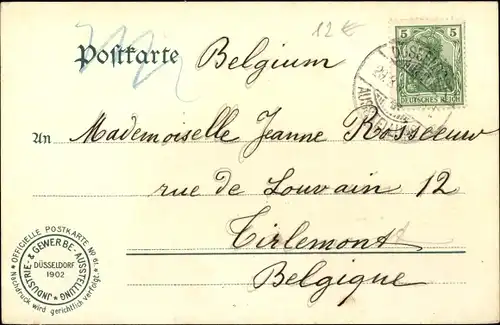 12 €
Postkarte Belgium
5 5
DEUTSCHES REICH
An Mademoiselle Jeanne Rosseeuw
rue de Louvain 12
Tirlemont
Belgique
* OFFICIELLE POSTKARTE No 61. *
Nachdruck wird gerichtlich verfolgt.
INDUSTRIE- & GEWERBE-AUSSTELLUNG
DÜSSELDORF
1902